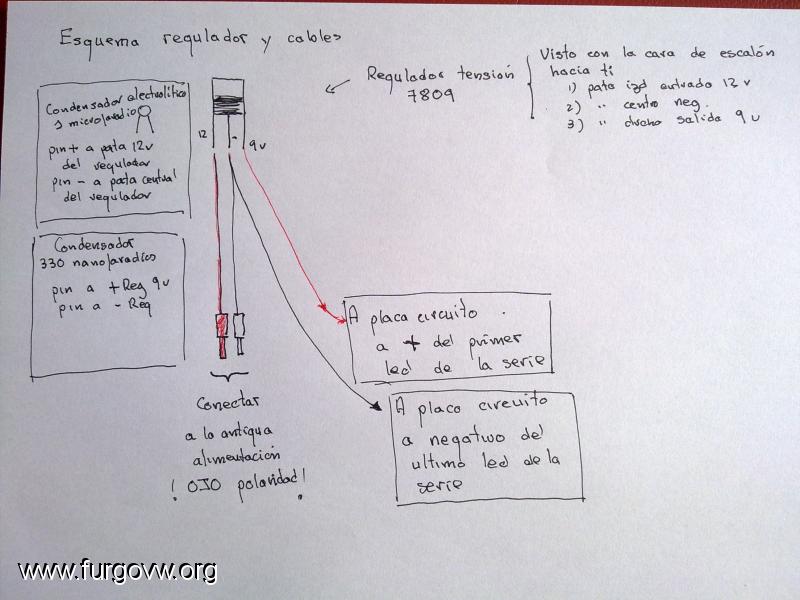 Esquema regulador y cables
Regulador tensión
7809
Visto con la cara de escalón
hacia ti
1) pata izd entrada 12 v
2) " centro neg.
3) " drcho salida 9 v
Condensador electrolítico
1 microfaradio
pin + a pata 12v
del regulador
pin - a pata central
del regulador
12
-
9v
Condensador
330 nanofaradios
pin a + Reg 9v
pin a - Reg
A placa circuito
a + del primer
led de la serie
A placa circuito
a negativo del
ultimo led de la
serie
Conectar
a la antigua
alimentación
! OJO polaridad!
www.furgovw.org